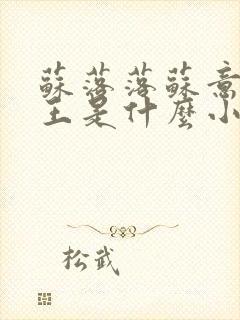 蘇落落蘇意
主是什麼小
松武